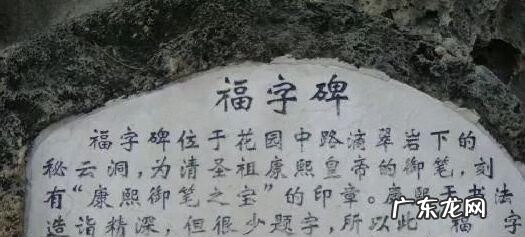 福字碑
福字碑位于花园中路滴翠岩下的
秘云洞,为清圣祖康熙皇帝的御笔,刻
有“康熙御笔之宝”的印章。康熙 书法
造诣精深,但很少题字,所以此 福 字
广东龙网